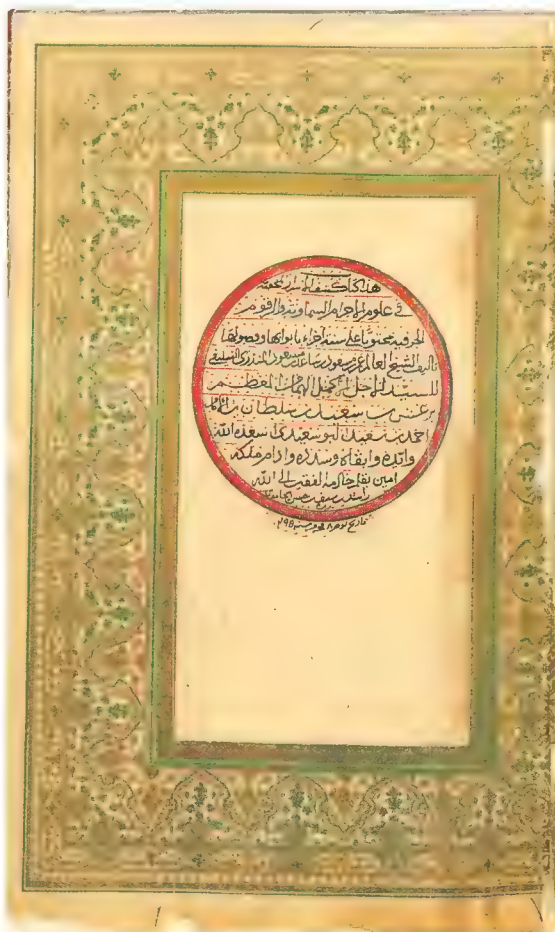 هذا كتاب كشف الأسرار المخفية
في علوم الاجرام السماوية والرقوم
الحرفية محتويًا على ستة أجزاء بأبوابها وفصولها
تأليف الشيخ العالم عمر بن مسعود بن ساعد المنذري السليفي
للسيد الأجل الأكمل الهمام المعظم
برغش بن سعيد بن سلطان بن الإمام
احمد بن سعيد البوسعيدي اسعده الله
وأيده وابقاه وسدده وادام ملكه
امين بقلم خادمه الفقير الى الله
راشد بن
تاريخ يوم ٨ سنة ١٢٩٥